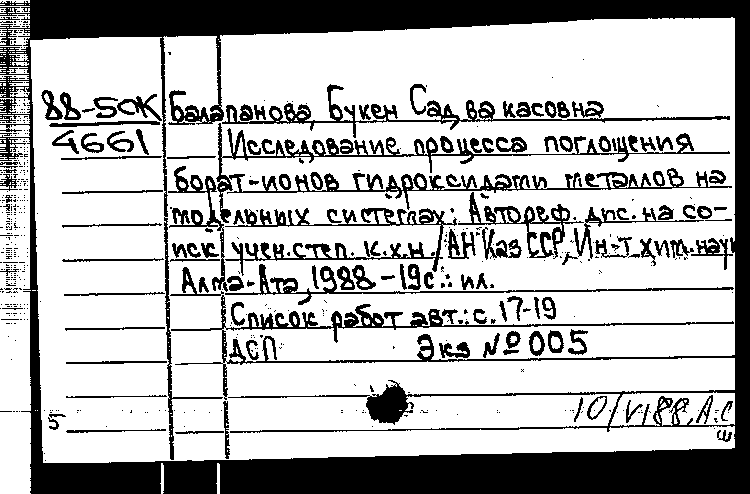 88-5ОК Балапанова, Букен Сад ва касовна
4661 Исследование процесса поглощения
борат-ионов гидроксидами металлов на
модельных системах: Автореф. дис. на со-
иск учен. степ. к.х.н. / АН КазССР, Ин-т хим. наук
Алма-Ата, 1988 - 19с.: ил.
Список работ авт.: с. 17-19
ДСП Экз № 005
10/VI 88, А.С
5 ш